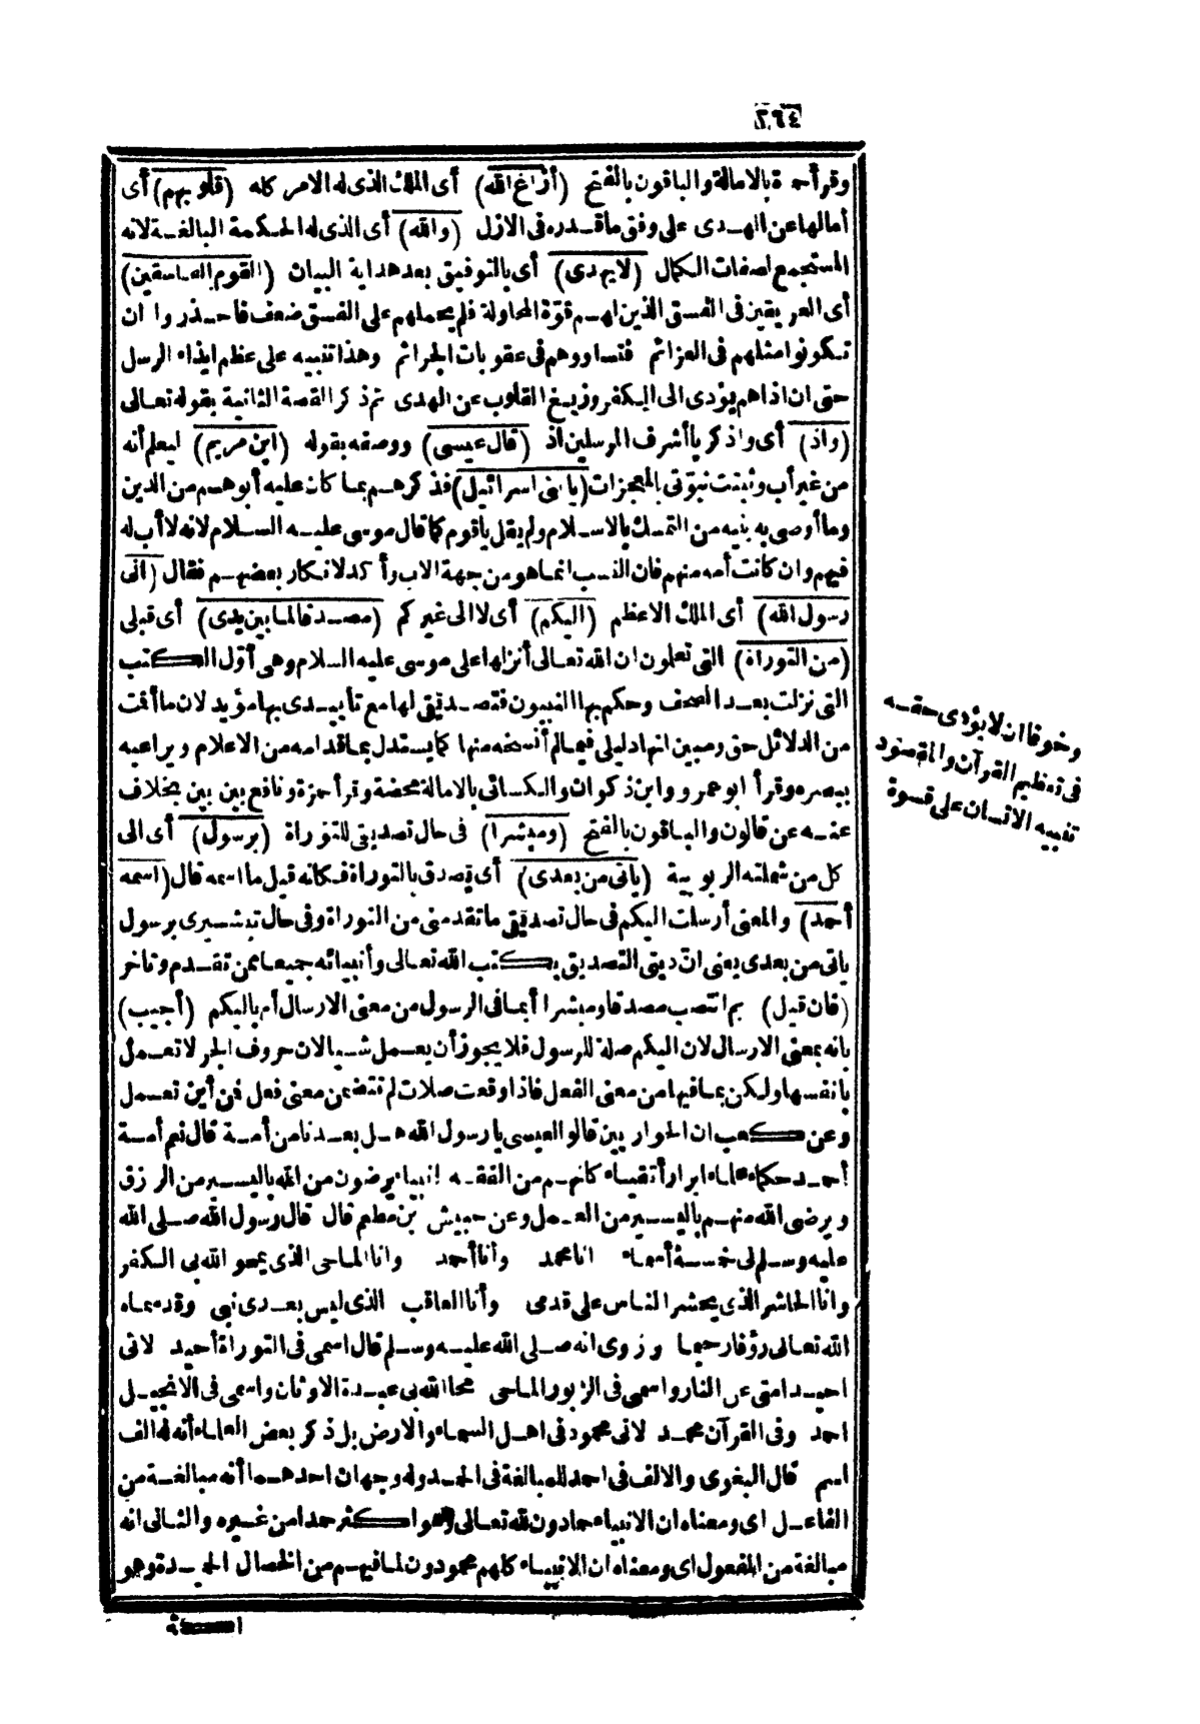 ٢٦٤
وقرأ حمزة بالامالة والباقون بالفتح (أزاغ الله) أى الملك الذى له الامر كله (قلوبهم) أى
أمالها عن الهدى على وفق ما قدره فى الازل (والله) أى الذى له الحكمة البالغة لانه
المستجمع لصفات الكمال (لا يهدى) أى بالتوفيق بعد هداية البيان (القوم الفاسقين)
أى العريقين فى الفسق الذين لهم قوّة المحاولة فلم يحملهم على الفسق ضعف فاحذروا ان
تكونوا مثلهم فى العزائم فتساووهم فى عقوبات الجرائم وهذا تنبيه على عظم ايذاء الرسل
حتى ان اذاهم يؤدى الى الكفر وزيغ القلوب عن الهدى ثم ذكر القصة الثانية بقوله تعالى
(واذ) أى واذكر يا أشرف المرسلين اذ (قال عيسى) ووصفه بقوله (ابن مريم) ليعلم أنه
من غير أب وثبتت نبوّتى بالمعجزات (يا بنى اسرائيل) فذكرهم بما كان عليه أبوهم من الدين
وما أوصى به بنيه من التمسك بالاسلام ولم يقل يا قوم كما قال موسى عليه السلام لانه لا أب له
فيهم وان كانت أمه منهم فان النسب انما هو من جهة الاب وأكد لانكار بعضهم فقال (انى
رسول الله) أى الملك الاعظم (اليكم) أى لا الى غيركم (مصدقا لما بين يدى) أى قبلى
(من التوراة) التى تعلمون ان الله تعالى أنزلها على موسى عليه السلام وهى أوّل الكتب
التى نزلت بعد الصحف وحكم بها النبيون فتصديقى لها مع تأييدى بها مؤيد لان ما أقمت
من الدلائل حق ومبين انها دليلى فيما لم أنسخه منها كما يستدل بما قدامه من الاعلام ويراعيه
ببصره وقرأ ابو عمرو وابن ذكوان والكسائى بالامالة محضة وقرأ حمزة ونافع بين بين بخلاف
عنه عن قالون والباقون بالفتح (ومبشرا) فى حال تصديقى للتوراة (برسول) أى الى
كل من شملته الربوبية (يأتى من بعدى) أى يصدق بالتوراة فكانه قيل ما اسمه قال (اسمه
أحمد) والمعنى أرسلت اليكم فى حال تصديقى ما تقدمنى من التوراة وفى حال تبشيرى برسول
يأتى من بعدى يعنى انّ دينى التصديق بكتب الله تعالى وأنبيائه جميعا ممن تقدم وتأخر
(فان قيل) بم انتصب مصدقا ومبشرا أبما فى الرسول من معنى الارسال أم باليكم (أجيب)
بانه بمعنى الارسال لان اليكم صلة للرسول فلا يجوز أن يعمل شيأ لان حروف الجر لا تعمل
بانفسها ولكن بما فيها من معنى الفعل فاذا وقعت صلات لم تتضمن معنى فعل فمن أين تعمل
وعن كعب ان الحواريين قالوا لعيسى يا رسول الله هل بعدنا من أمة قال نعم أمة
أحمد حكماء علماء ابرار أتقياء كانهم من الفقه انبياء يرضون من الله باليسير من الرزق
ويرضى الله منهم باليسير من العمل وعن حبيش بن مطعم قال قال رسول الله صلى الله
عليه وسلم لى خمسة أسماء انا محمد وأنا أحمد وانا الماحى الذى يمحو الله بى الكفر
وانا الحاشر الذى يحشر الناس على قدمى وأنا العاقب الذى ليس بعدى نبى وقد سماه
الله تعالى رؤفا رحيما وروى انه صلى الله عليه وسلم قال اسمى فى التوراة أحيد لانى
احيد امتى عن النار واسمى فى الزبور الماحى محا الله بى عبدة الاوثان واسمى فى الانجيل
احمد وفى القرآن محمد لانى محمود فى اهل السماء والارض بل ذكر بعض العلماء أنه له الف
اسم قال البغوى والالف فى احمد للمبالغة فى الحمد وله وجهان احدهما أنه مبالغة من
الفاعل اى ومعناه ان الانبياء حمادون لله تعالى وهو اكثر حمدا من غيره والثانى انه
مبالغة من المفعول اى ومعناه ان الانبياء كلهم محمودون لما فيهم من الخصال الحميدة وهو
وخوفا ان لا يؤدى حقه
فى تعظيم القرآن والمقصود
تنبيه الانسان على قسوة
اكثر